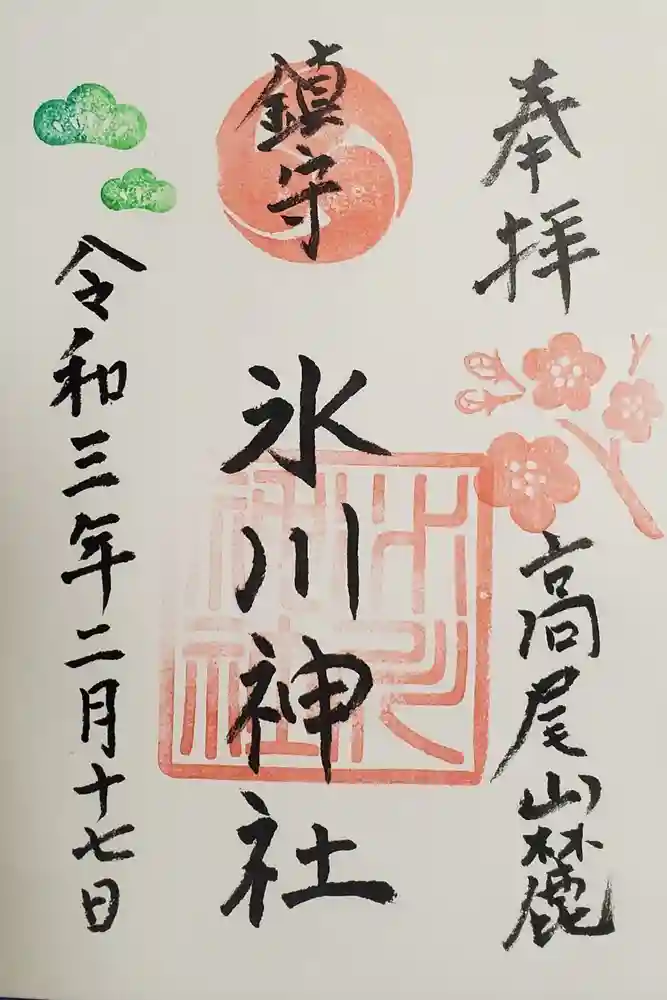 奉拝
高尾山麓
鎮守
氷川神社
令和三年二月十七日